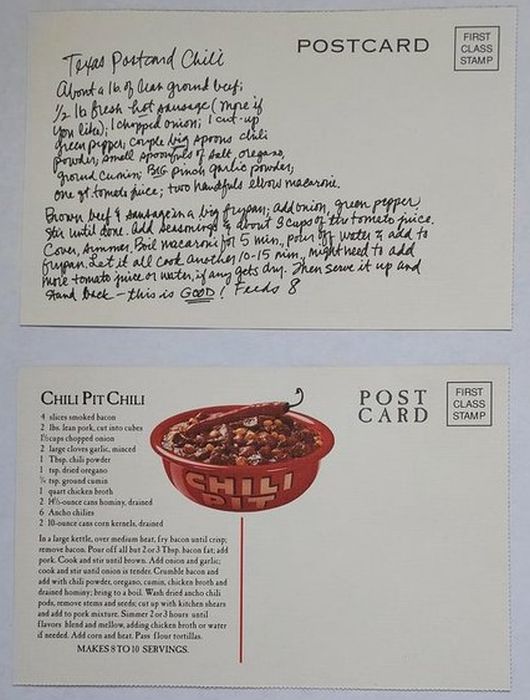 Texas Postcard Chili
POSTCARD
FIRST
CLASS
STAMP
About a lb. of lean ground beef;
1/2 lb fresh hot sausage (more if
you like); 1 chopped onion; 1 cut-up
green pepper; couple big spoons chili
powder; small spoonfuls of salt, oregano,
ground cumin; BIG pinch garlic powder;
one qt. tomato juice; two handfuls elbow macaroni.
Brown beef & sausage in a big frypan; add onion, green pepper,
stir until done. Add seasonings & about 3 cups of the tomato juice.
Cover, simmer. Boil macaroni for 5 min., pour off water & add to
frypan. Let it all cook another 10-15 min., might need to add
more tomato juice or water, if any gets dry. Then serve it up and
stand back – this is GOOD! Feeds 8
CHILI PIT CHILI
POST
CARD
FIRST
CLASS
STAMP
4 slices smoked bacon
2 lbs. lean pork, cut into cubes
1½ cups chopped onion
2 large cloves garlic, minced
1 Tbsp. chili powder
1 tsp. dried oregano
¾ tsp. ground cumin
1 quart chicken broth
2 14½-ounce cans hominy, drained
6 Ancho chilies
2 10-ounce cans corn kernels, drained
CHILI
PIT
In a large kettle, over medium heat, fry bacon until crisp;
remove bacon. Pour off all but 2 or 3 Tbsp. bacon fat; add
pork. Cook and stir until brown. Add onion and garlic;
cook and stir until onion is tender. Crumble bacon and
add with chili powder, oregano, cumin, chicken broth and
drained hominy; bring to a boil. Wash dried ancho chili
pods, remove stems and seeds; cut up with kitchen shears
and add to pork mixture. Simmer 2 or 3 hours until
flavors blend and mellow, adding chicken broth or water
if needed. Add corn and heat. Pass flour tortillas.
MAKES 8 TO 10 SERVINGS.